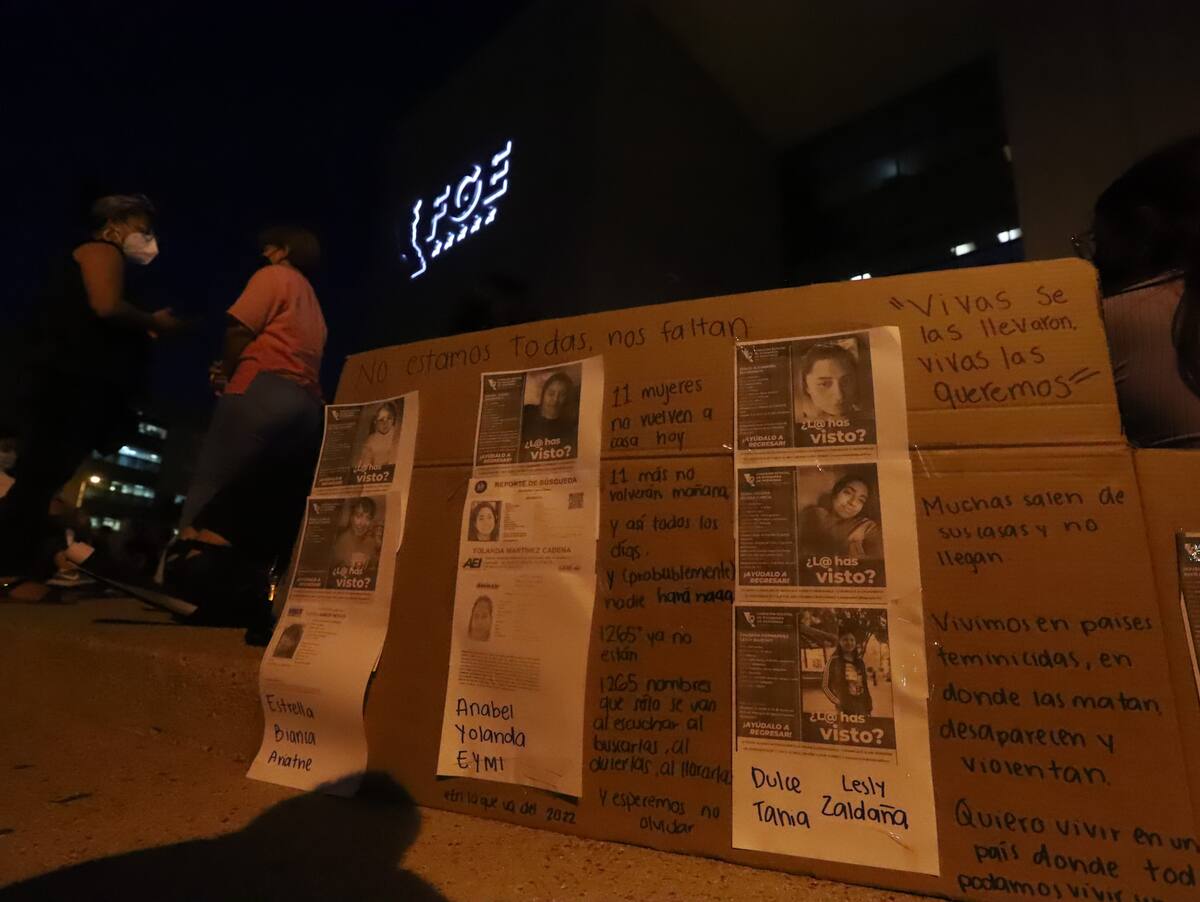 FGE
No estamos Todas, nos faltan
"Vivas se
las llevaron,
vivas las
queremos"
¿L@ has
visto?
¿L@ has
visto?
Estrella
Bianca
Ariatne
¡AYÚDALO A
REGRESAR!
¿L@ has
visto?
REPORTE DE BÚSQUEDA
YOLANDA MARTÍNEZ CADENA
AEI
Anabel
Yolanda
EYMI
*En lo que va del 2022
11 mujeres
no vuelven a
casa hoy
11 más no
volverán mañana
y así todos los
días.
Y (probablemente)
nadie hará nada
1265* ya no
están
1265 nombres
que sólo se van
al escuchar al
buscarlas, al
Y esperemos no
olvidar
¡AYÚDALO A
REGRESAR!
¿L@ has
visto?
¡AYÚDALO A
REGRESAR!
¿L@ has
visto?
¡AYÚDALO A
REGRESAR!
¿L@ has
visto?
Dulce Lesly
Tania Zaldaña
Muchas salen de
sus casas y no
llegan.
Vivimos en países
feminicidas, en
donde las matan,
desaparecen y
violentan.
Quiero vivir en un
país donde tod
podamos vivir